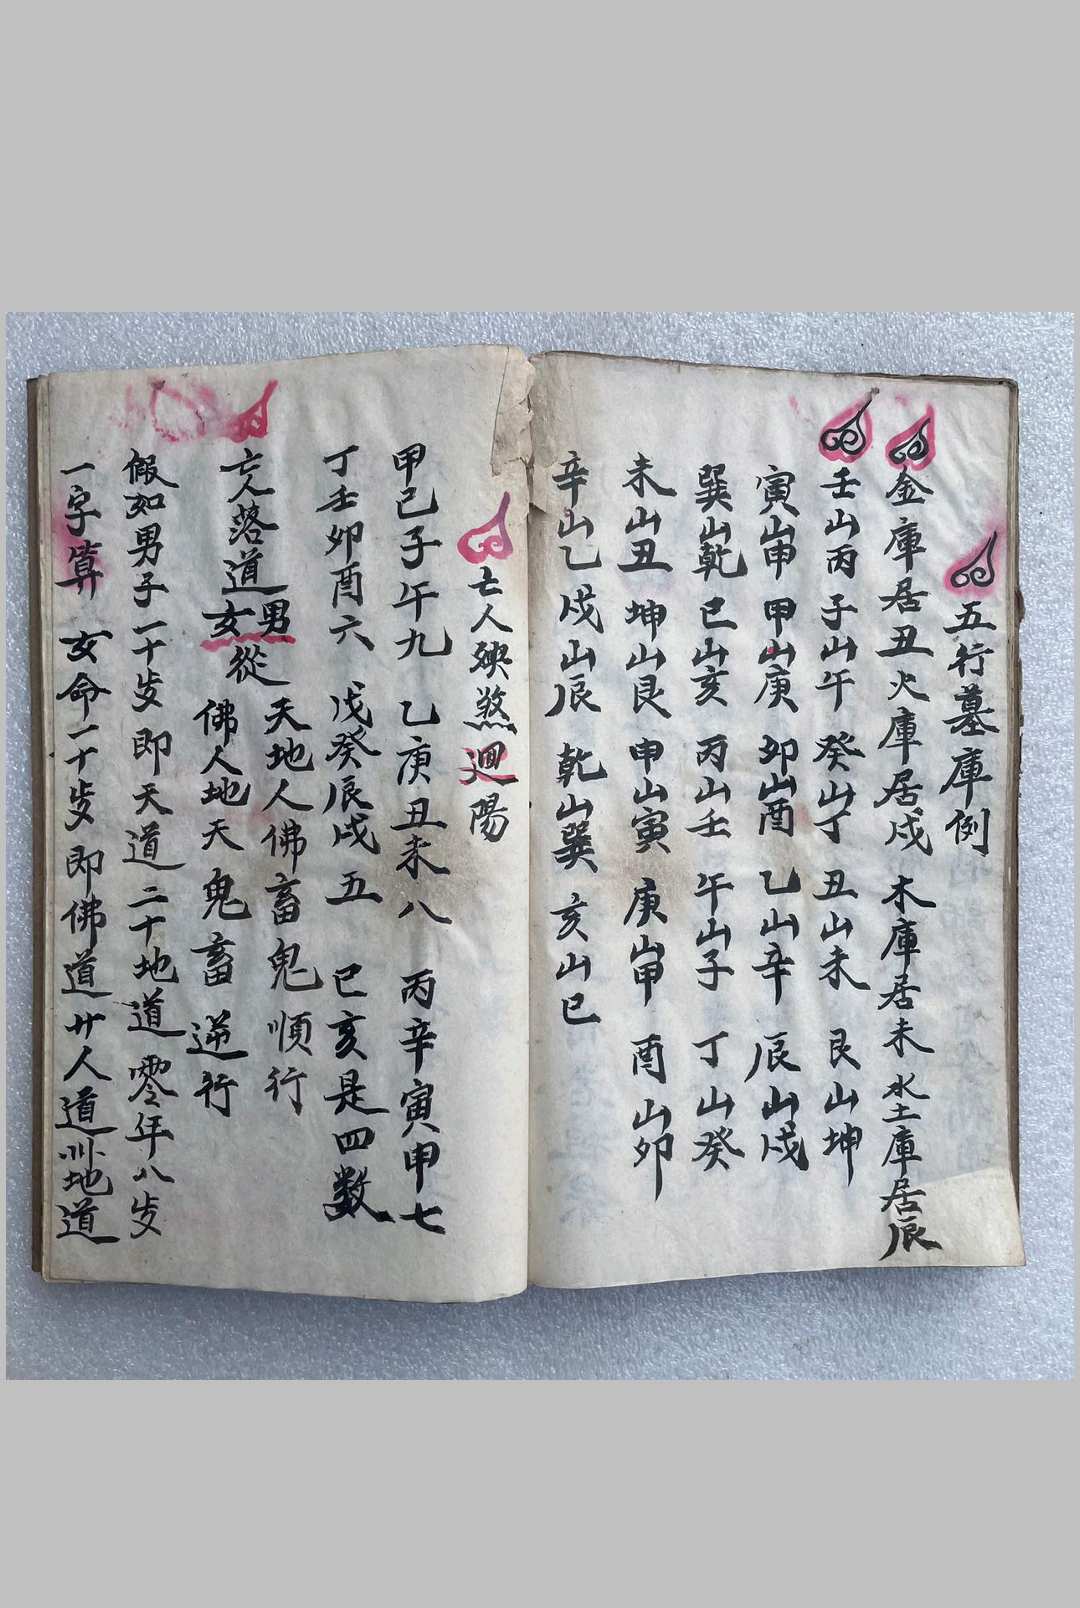 五行墓庫例
金庫居丑火庫居戌 木庫居未水土庫居辰
壬山丙 子山午 癸山丁 丑山未 艮山坤
寅山申 甲山庚 卯山酉 乙山辛 辰山戌
巽山乾 巳山亥 丙山壬 午山子 丁山癸
未山丑 坤山艮 申山寅 庚山甲 酉山卯
辛山乙 戌山辰 乾山巽 亥山巳
亡人殃煞迴陽
甲己子午九 乙庚丑未八 丙辛寅申七
丁壬卯酉六 戊癸辰戌五 巳亥是四数
亡人落道男女從
天地人佛畜鬼順行
佛人地天鬼畜逆行
假如男子一十岁即天道二十地道零年八岁
一字算 女命一十岁即佛道廿人道卅地道